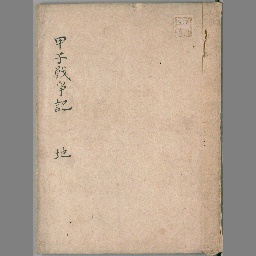 甲子戦争記 地